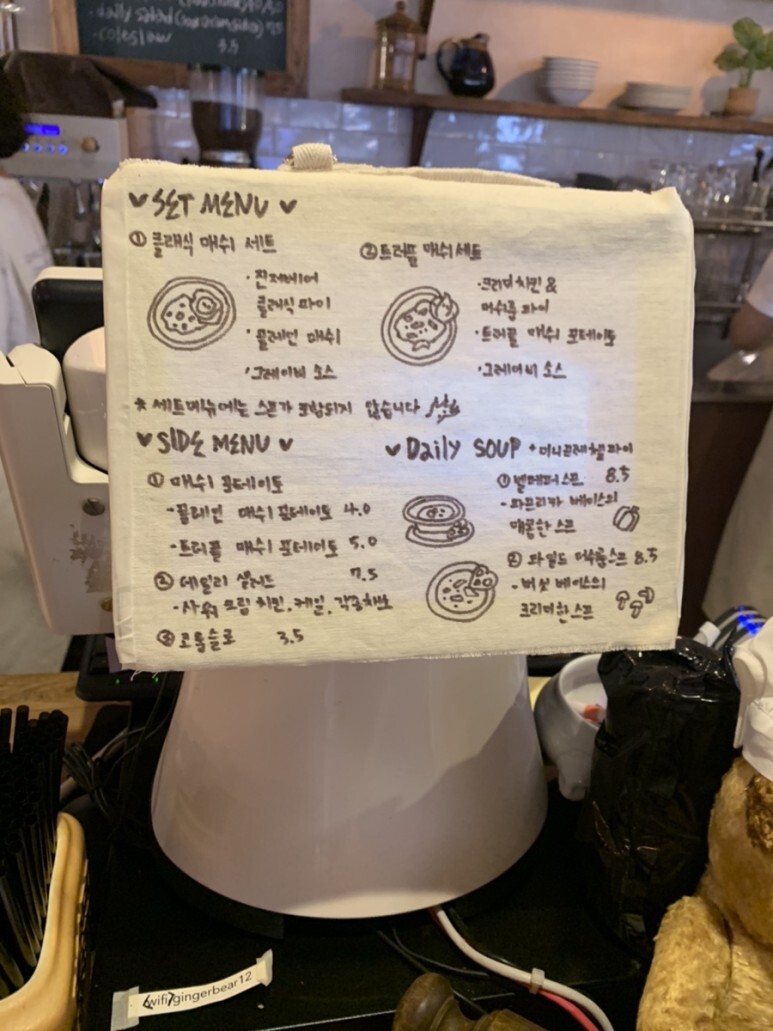 -daily salad
-coleslaw 3.5
SET MENU
① 클래식 매쉬 세트
·진저베어
클래식 파이
·플레인 매쉬
·그레이비 소스
② 트러플 매쉬 세트
·크리미 치킨 &
머쉬룸 파이
·트러플 매쉬 포테이토
·그레이비 소스
* 세트메뉴에는 스프가 포함되지 않습니다
SIDE MENU
① 매쉬 포테이토
-플레인 매쉬 포테이토 4.0
-트러플 매쉬 포테이토 5.0
② 데일리 샐러드 7.5
-사워 크림 치킨, 케일, 각종채소
③ 코울슬로 3.5
Daily SOUP + 미니 플레인 파이
① 벨페퍼 스프 8.5
-파프리카 베이스의
매콤한 스프
② 와일드 머쉬룸 스프 8.5
-버섯 베이스의
크리미한 스프
wifi gingerbear12